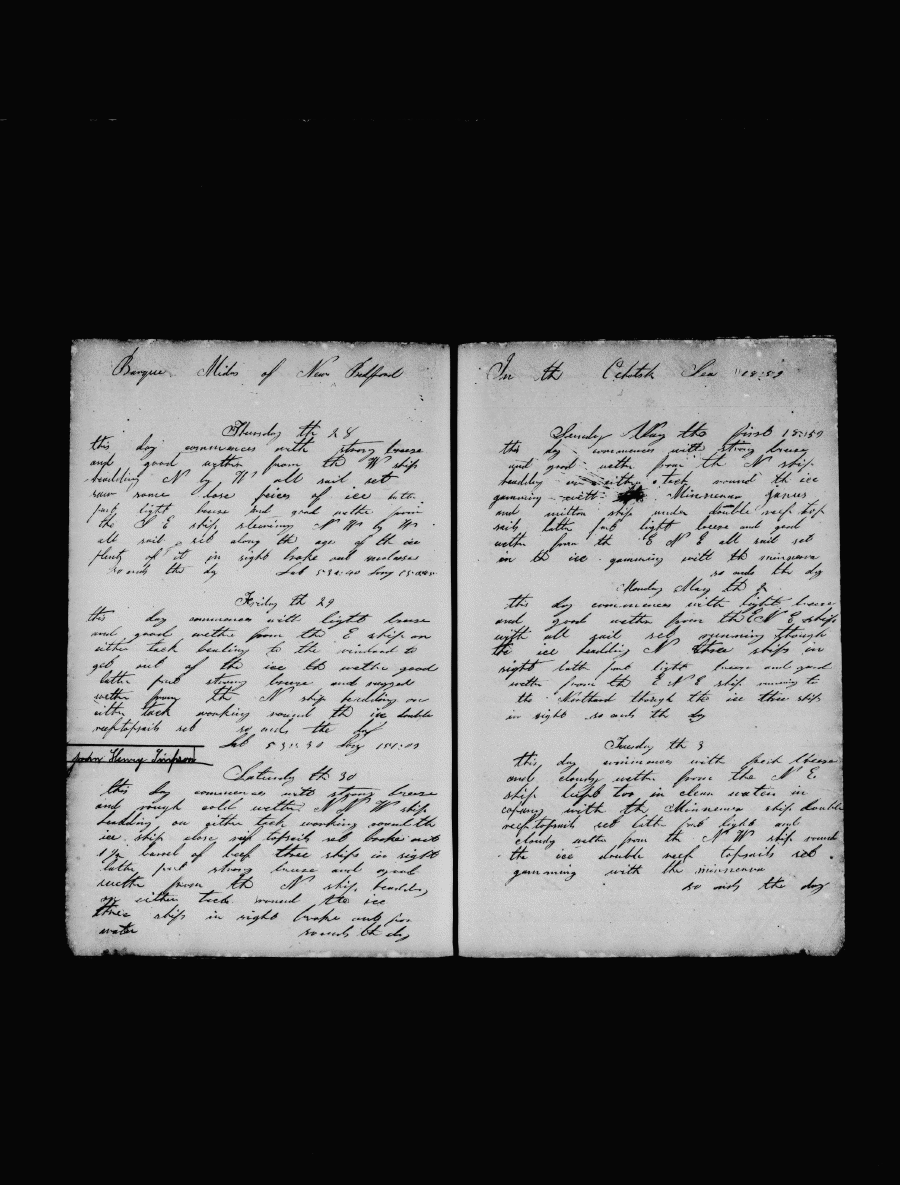 Barque Milos of New Bedford
Thursday th 28
this day commences with strong breese
and good wether from the W ship
heading N by W all sail set
saw some lose peices of ice latter
part light breese and good wether from
the S E ship steering N W by W
all sail set along the age of th ice
plenty of it in sight broke out
so ends the day Lat 53:40 Long
Friday th 29
this day commences with light breese
and good wether from the E ship on
either tack beating to the windard to
get out of the ice wether good
latter part strong breese and rugged
wether from th N ship heading on
either tack working round th ice double
reef topsails set so ends the day
Lat 53:30 Long 151:03
John Henry Simpson
Saturday th 30
this day commences with strong breese
and rough cold wether N N W ship
heading on either tack working round the
ice ship close reef topsails set broke out
barrel of beef three ships in sight
latter part strong breese and good
wether from th N ship heading
on either tack round the ice
three ships in sight broke out for
water so ends th day
In th Ochotsk Sea 18:59
Sunday May the first 18:59
this day commences with strong breese
and good wether from th N ship
heading on either tack round th ice
gamming with Minnerva
and ship under double reef top
sails latter part light breese and good
wether from th E N E all sail set
in th ice gamming with th minnerva
so ends the day
Monday May th 2
this day commences with light breese
and good wether from th E N E ship
with all sail set running though
the ice heading N three ships in
sight latter part light breese and good
wether from th E N E ship running to
the Northard through the ice three ship
in sight so ends the day
Tuesday th 3
this day commences with fresh breese
and cloudy wether from the N E
ship in clear water in
company with th Minnerva ship double
reef topsails set latter part light and
cloudy wether from th N W ship round
the ice double reef topsails set
gamming with the minnerva
so ends the day